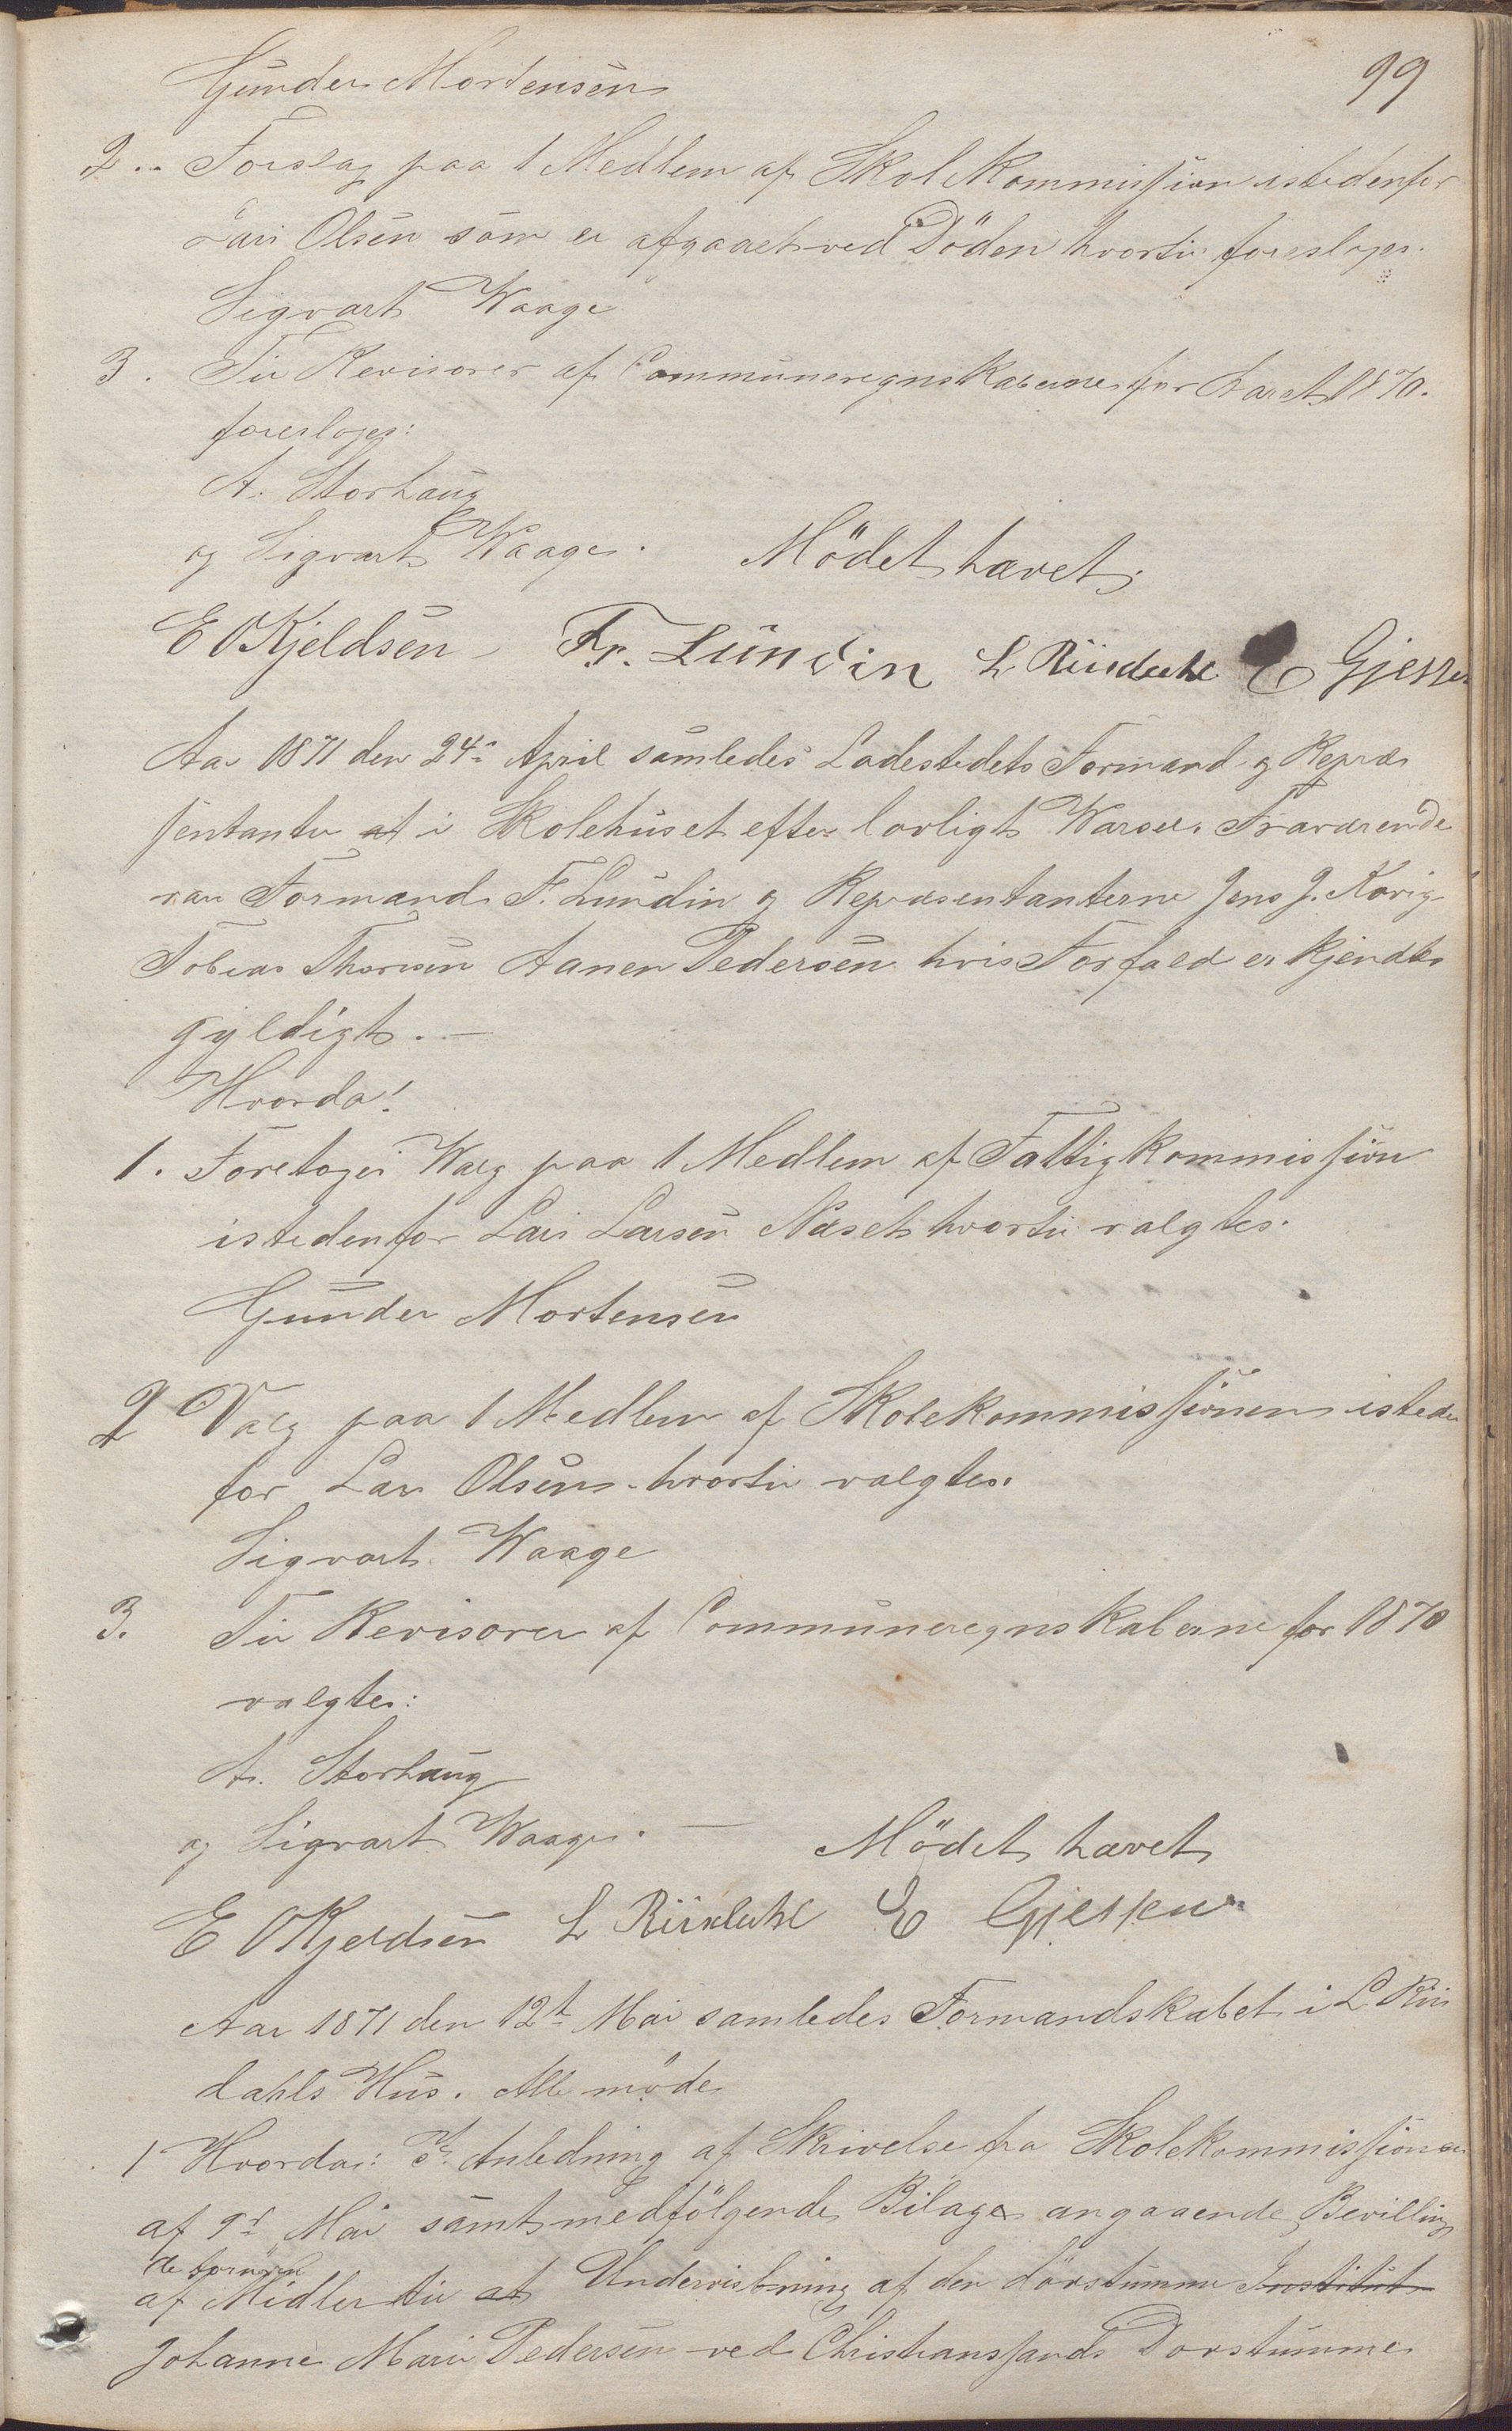 99
Gunder Mortensen
2. Forslag paa 1 Medlem af Skolekommissjon istedenfor
Lars Olsen som er afgaaet ved Döden hvortil foresloges.
Sigvart Waage
3. Til Revisorer af Communeregnskaberne for Aaret 1870.
foresloges:
A. Storhaug
og Sigvart Waage. Mödet hævet.
E O Kjeldsen Fr. Lundin L Riisdahl E Gjessen
Aar 1871 den 24de April samledes Ladestedets Formænd og Repræ
sentanter at i Skolehuset efter lovligt Warsel. Fraværende
var Formand F. Lundin og Repræsentanterne Jens J. Korig
Tobias Thorsen Aanen Pedersen hvis Forfald er kjendte
gyldigt. —
Hvorda!
1. Foretoges Walg paa 1 Medlem af Fattigkommissjon
istedenfor Lars Larsen Næset hvortil valgtes.
Gunder Mortensen
2 Valg paa 1 Medlem af Skolekommissjonen isteden
for Lars Olsen hvortil valgtes.
Sigvart Waage
3. Til Revisorer af Communeregnskaberne for 1870
valgtes:
A. Storhaug
og Sigvart Waage. — Mödet hævet
E O Kjeldsen L Riisdahl E Gjessen
Aar 1871 den 12te Mai samledes Formandskabet i L Riis
dahls Hus. Alle mödte
1 Hvorda: I Anledning af Skrivelse fra Skolekommissjonen
af 9de Mai samt medfölgende Bilage angaaende Bevilling
de fornödne
af Midler til at Undervisning af den dövstumme Institut
Johanne Marie Pedersen ved Christianssands Dovstumme